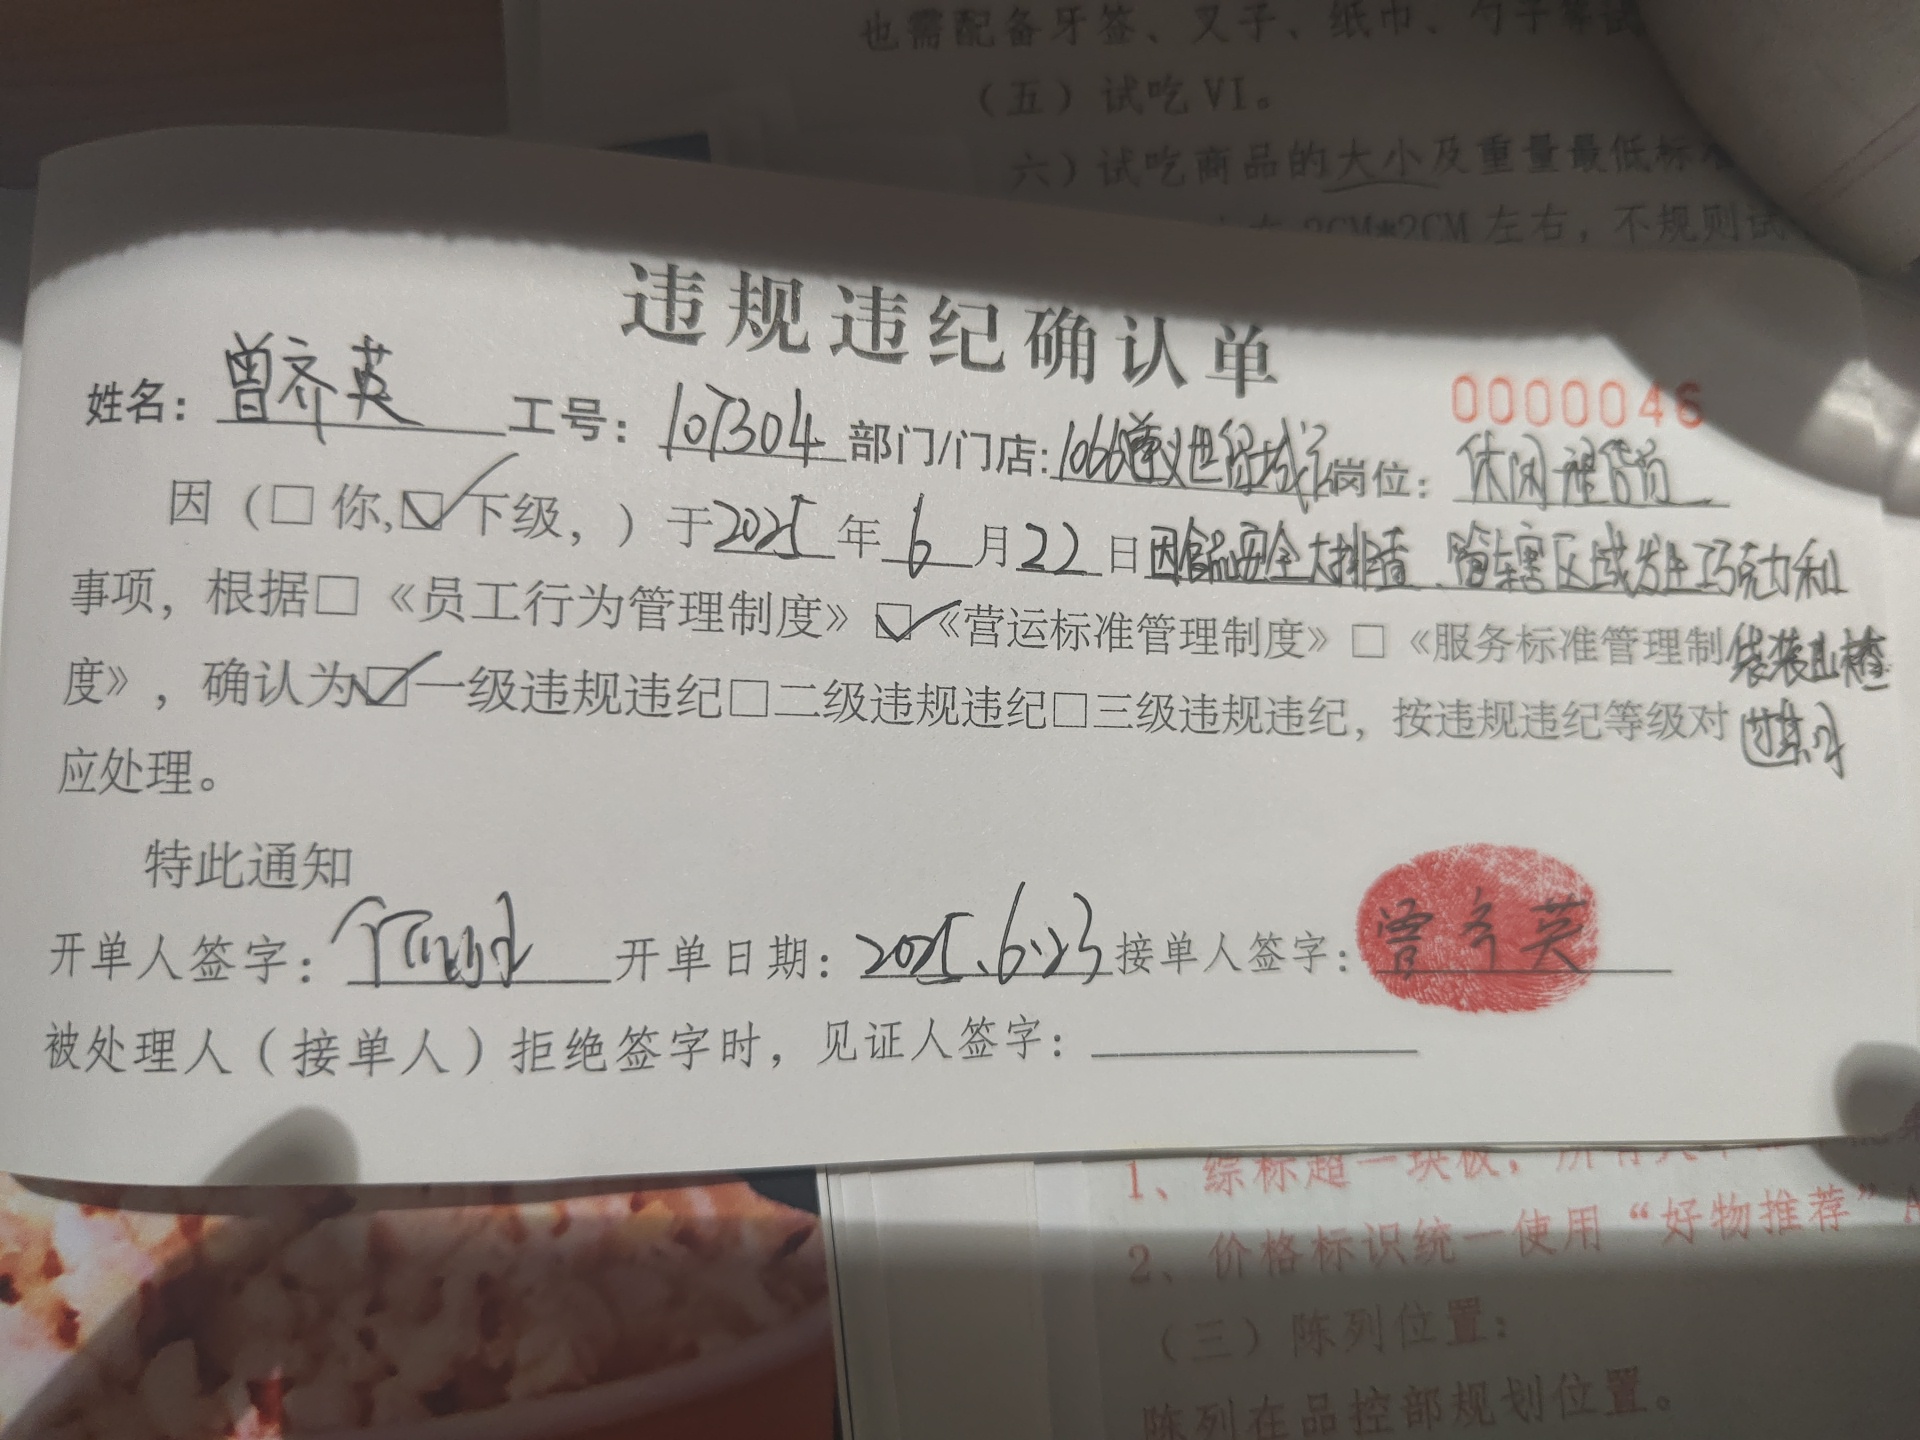 也需配备牙签、叉子、纸巾、勺子等试
（五）试吃VI。
六）试吃商品的大小及重量最低标准
2CM*2CM左右，不规则试
违规违纪确认单
0000046
姓名：曾齐英 工号：107304 部门/门店:1066遵义世纪城店 岗位：休闲理货员
因（□你,☑下级，）于2025年6月22日因食品安全大排查、管辖区域发生巧克力和
事项，根据□《员工行为管理制度》☑《营运标准管理制度》□《服务标准管理制 袋装山楂
度》，确认为☑一级违规违纪□二级违规违纪□三级违规违纪，按违规违纪等级对 过期
应处理。
特此通知
开单人签字： 开单日期：2025.6.23 接单人签字：曾齐英
被处理人（接单人）拒绝签字时，见证人签字：
1、综标超一块板，所有
2、价格标识统一使用“好物推荐”A
（三）陈列位置：
陈列在品控部规划位置。